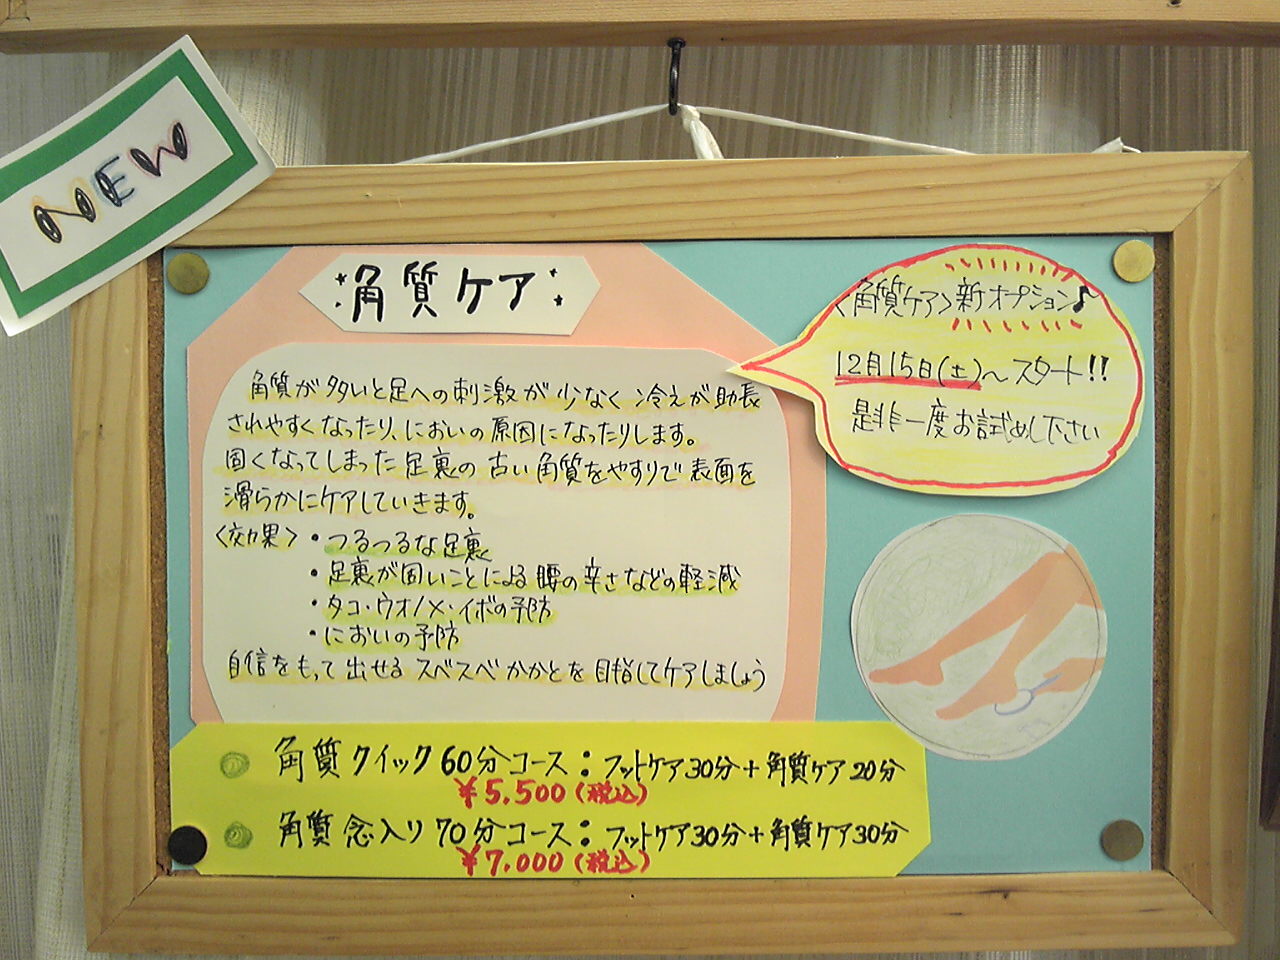 NEW
角質ケア
角質が多いと足への刺激が少なく冷えが助長
されやすくなったり、においの原因になったりします。
固くなってしまった足裏の古い角質をやすりで表面を
滑らかにケアしていきます。
〈効果〉・つるつるな足裏
・足裏が固いことによる腰の辛さなどの軽減
・タコ・ウオノメ・イボの予防
・においの予防
自信をもって出せるスベスベかかとを目指してケアしましょう
〈角質ケア〉新オプション♪
12月15日(土)〜スタート!!
是非一度お試め下さい
角質クイック60分コース:フットケア30分+角質ケア20分
¥5,500(税込)
角質念入り70分コース:フットケア30分+角質ケア30分
¥7,000(税込)